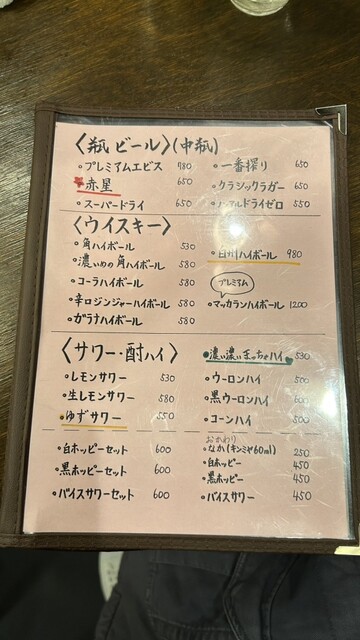 〈瓶ビール〉(中瓶)
・プレミアムエビス 780 ・一番搾り 650
赤星 650 ・クラシックラガー 650
・スーパードライ 650 ドライゼロ 550
〈ウイスキー〉
・角ハイボール 530
・白州ハイボール 980
・濃いめの角ハイボール 580
・コーラハイボール 580
プレミアム
・辛口ジンジャーハイボール 580 ・マッカランハイボール 1200
・ガラナハイボール 580
〈サワー・酎ハイ〉
・濃い濃いまっちゃハイ 530
・レモンサワー 530 ・ウーロンハイ 500
・生レモンサワー 580 ・黒ウーロンハイ
・ゆずサワー 550 ・コーンハイ 500
おかわり
・白ホッピーセット 600 ・なか(キンミヤ60ml) 250
・白ホッピー 450
・黒ホッピーセット 600 ・黒ホッピー 450
・バイスサワーセット 600 ・バイスサワー 450